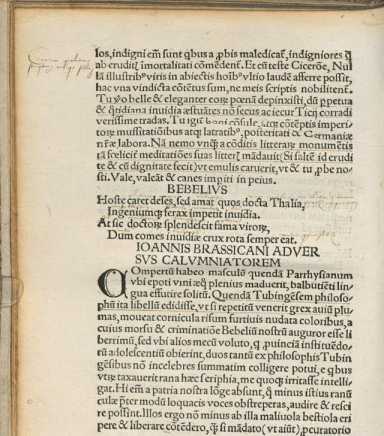 los, indigni em̃ sunt q̃bus a ꝓbis maledicat̃, indigniores q̃
ab eruditꝭ ĩmortalitati cõmẽdent. Et cũ teste Cicerõe, Nul
lã illustribꝰ viris in abiectis hoĩbꝰ vltio laudẽ afferre possit,
hac vna vindicta cõtẽtus sum, ne meis scriptis nobilitent̃.
Tu ṽo belle & eleganter eorꝝ pœnã depinxisti, dũ ꝑpetua
& q̃tidiana inuidia æstuãtes nõ secus ac iecur Ticij corradi
verissime tradas. Tu igit̃ cõtẽptis imperi
torꝝ mussitatiõibus atqꝫ latratibꝰ, posteritati & Germaniæ
nr̃æ labora. Nã nemo vnqͣꝫ a cõditis litterarꝝ monumẽtis
tã fœlicit̃ meditatiões suas litterꝭ mãdauit (Si saltẽ id erudi
te & cũ dignitate fecit) vt emulis caruerit, vt & tu, ꝓbe no-
sti. Vale, valeãt & canes impiti in peius.
BEBELIVS
Hoste caret deses, sed amat quos docta Thalia,
Ingeniumqꝫ ferax impetit inuidia.
At sic doctorꝝ splendescit fama virorꝝ,
Dum comes inuidiæ crux rota semper eat.
IOANNIS BRASSICANI ADVER
SVS CALVMNIATOREM
COmpertũ habeo masculũ quendã Parrhysianum
vbi epoti vini æq̃ plenius maduerit, balbutiẽti lin-
gua effutire solitũ. Quendã Tubingẽsem philoso-
phũ ita libellũ edidisse, vt si repetitũ venerit grex auiũ plu-
mas, moueat cornicula risum furtiuis nudata coloribus, a
cuius morsu & criminatiõe Bebeliũ nostrũ auguror esse li
berrimũ, sed vbi alios mecũ voluto, q̃ puinciã instituẽdo-
rũ adolescentiũ obierint, duos tantũ ex philosophis Tubin
gẽsibus nõ incelebres summatim colligere potui, e quibus
vtrꝝ taxauerit rana hæc seriphia, me quoqꝫ irritasse intelli-
gat. Hi em̃ a patria nostra lõge absunt, q̃ minus istius ranũ
culæ ꝑter modũ loquacis voces obstreperas, audire & resci
re possint. Illos ergo nõ minus ab illa maliuola bestiola eri
pere & liberare cõtẽdero, q̃ si mãdato (vt aiũt) ꝓcuratorio